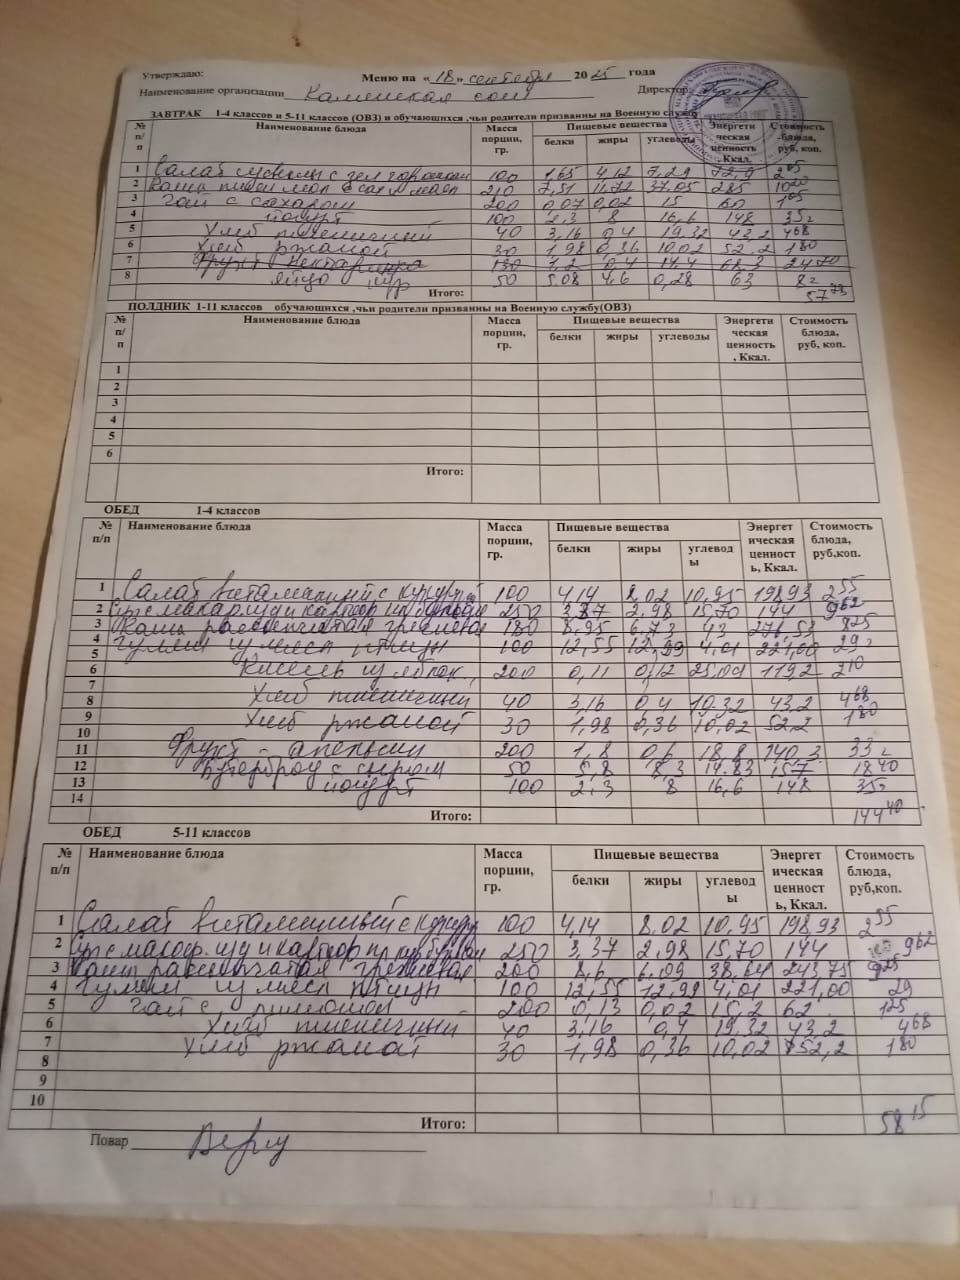 Утверждаю:
Меню на « 18 » сентября 20 25 года
Наименование организации Каменская сош Директор:
ЗАВТРАК 1-4 классов и 5-11 классов (ОВЗ) и обучающихся ,чьи родители призванны на Военную службу
№ п/п Наименование блюда Масса порции, гр. Пищевые вещества Энергетическая ценность, Ккал. Стоимость блюда, руб, коп.
белки жиры углеводы
1 Салат с зел горошком 100 1,65 4,12 7,29 72,9
2 Каша мол с сах маслом 210 7,51 11,72 37,05 285 10 20
3 Чай с сахаром 200 0,07 0,02 15 60 1 05
4 йогурт 100 2,3 8 16,6 148 35 =
5 Хлеб пшеничный 40 3,16 0,4 19,32 43,2 4 68
6 Хлеб ржаной 30 1,98 0,36 10,02 52,2 1 80
7 Фрукт нектарина 130 1,2 0,4 14,4 68,3 24 70
8 яйцо 50 5,08 4,6 0,28 63 8 =
Итого: 57 73
ПОЛДНИК 1-11 классов обучающихся ,чьи родители призванны на Военную службу(ОВЗ)
№ п/п Наименование блюда Масса порции, гр. Пищевые вещества Энергетическая ценность, Ккал. Стоимость блюда, руб, коп.
белки жиры углеводы
1
2
3
4
5
6
Итого:
ОБЕД 1-4 классов
№ п/п Наименование блюда Масса порции, гр. Пищевые вещества Энергетическая ценность, Ккал. Стоимость блюда, руб,коп.
белки жиры углеводы
1 Салат витаминный с кукуруз 100 4,14 8,02 10,95 198,93 2 55
2 Суп с макар. изд и картоф на бульоне 250 3,37 2,98 15,70 144 9 62
3 Каша рассыпчатая гречневая 180 8,95 6,73 43 276,53 8 25
4 Гуляш из мяса птицы 100 12,55 12,99 4,01 221,00 29 =
5
6 Кисель из яблок 200 0,11 0,12 25,09 119,2 2 10
7
8 Хлеб пшеничный 40 3,16 0,4 19,32 43,2 4 68
9 Хлеб ржаной 30 1,98 0,36 10,02 52,2 1 80
10
11 Фрукт - апельсин 200 1,8 0,6 18,8 140,3 33 =
12 Бутерброд с сыром 50 5,8 8,3 14,83 157 18 40
13 йогурт 100 2,3 8 16,6 148 35 =
14
Итого: 144 40
ОБЕД 5-11 классов
№ п/п Наименование блюда Масса порции, гр. Пищевые вещества Энергетическая ценность, Ккал. Стоимость блюда, руб,коп.
белки жиры углеводы
1 Салат витаминный с кукуруз 100 4,14 8,02 10,95 198,93 2 55
2 Суп с макар. изд и картоф на бульоне 250 3,37 2,98 15,70 144 9 62
3 Каша рассыпчатая гречневая 200 8,6 6,09 38,64 243,75 9 25
4 Гуляш из мяса птицы 100 12,55 12,99 4,01 221,00 29
5 Чай с лимоном 200 0,13 0,02 15,2 62 1 25
6 Хлеб пшеничный 40 3,16 0,4 19,32 43,2 4 68
7 Хлеб ржаной 30 1,98 0,36 10,02 52,2 1 80
8
9
10
Итого: 58 15
Повар